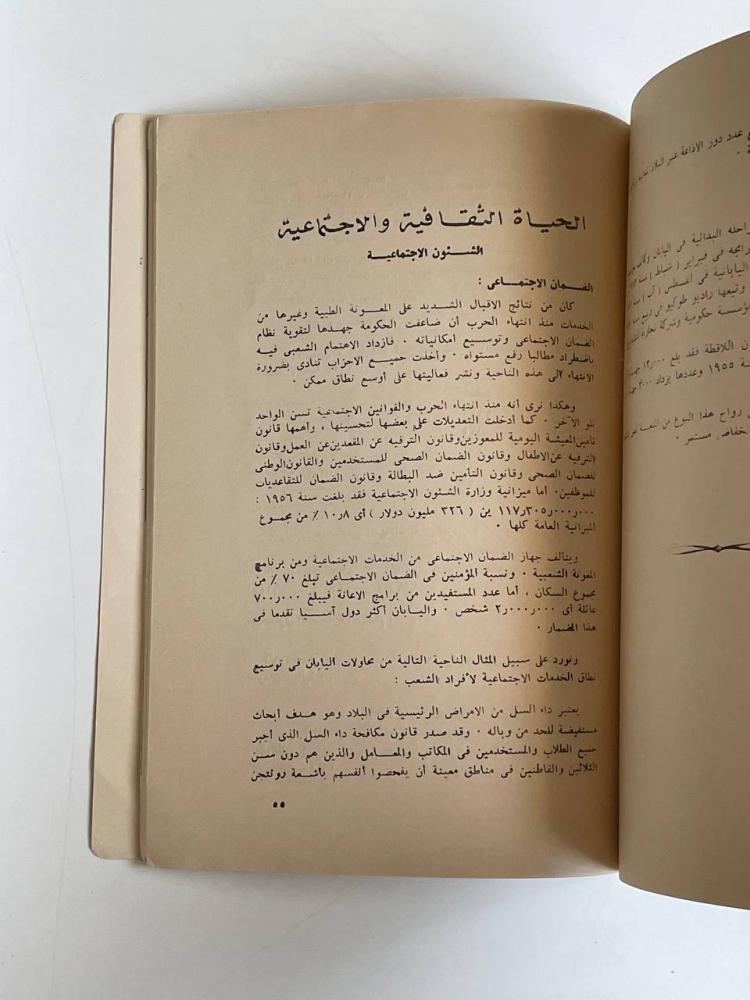 الحياة الثقافية والاجتماعية
الشئون الاجتماعية
الضمان الاجتماعى :
كان من نتائج الاقبال الشديد على المعونة الطبية وغيرها من
الخدمات منذ انتهاء الحرب أن ضاعفت الحكومة جهدها لتقوية نظام
الضمان الاجتماعى وتوسيع امكانياته ٠ فازداد الاهتمام الشعبى فيه
باضطراد مطالبا رفع مستواه ٠ وأخذت جميع الاحزاب تنادى بضرورة
الانتهاء الى هذه الناحية ونشر فعاليتها على أوسع نطاق ممكن ٠
وهكذا نرى أنه منذ انتهاء الحرب والقوانين الاجتماعية تسن الواحد
تلو الآخر ٠ كما أدخلت التعديلات على بعضها لتحسينها ، وأهمها قانون
تأمين المعيشة اليومية للمعوزين وقانون الترفيه عن المقعدين عن العمل وقانون
الترفيه عن الاطفال وقانون الضمان الصحى للمستخدمين والقانون الوطنى
للضمان الصحى وقانون التأمين ضد البطالة وقانون الضمان للتقاعديات
للموظفين٠ أما ميزانية وزارة الشئون الاجتماعية فقد بلغت سنة ١٩٥٦ :
١١٧ر٣٠٥ر٠٠٠ر٠٠٠ ين ( ٣٢٦ مليون دولار ) أى ١٠ر٨ ٪ من مجموع
الميزانية العامة كلها ٠
ويتألف جهاز الضمان الاجتماعى من الخدمات الاجتماعية ومن برنامج
المعونة الشعبية ٠ ونسبة المؤمنين فى الضمان الاجتماعى تبلغ ٧٠ ٪ من
مجموع السكان ، أما عدد المستفيدين من برامج الاعانة فيبلغ ٧٠٠ر٠٠٠
عائلة أى ٢ر٠٠٠ر٠٠٠ شخص ٠ واليابان أكثر دول آسيا تقدما فى
هذا المضمار ٠
ونورد على سبيل المثال الناحية التالية من محاولات اليابان فى توسيع
نطاق الخدمات الاجتماعية لأفراد الشعب :
يعتبر داء السل من الامراض الرئيسية فى البلاد وهو هدف أبحاث
مستفيضة للحد من وباله ٠ وقد صدر قانون مكافحة داء السل الذى أجبر
جميع الطلاب والمستخدمين فى المكاتب والمعامل والذين هم دون سن
الثلاثين والقاطنين فى مناطق معينة أن يفحصوا أنفسهم باشعة رونتجن
٥٥
عدد دور الاذاعة عبر البلاد
احله البدائية فى اليابان
رامجه فى فبراير ( شباط )
اليابانية فى أغسطس ( آب )
وتبعها راديو طوكيو فى
مؤسسة حكومية وشركة تجارة
ن اللاقطة فقد بلغ
نة ١٩٥٥ وعددها يزداد
رواج هذا النوع من
مستمر ٠